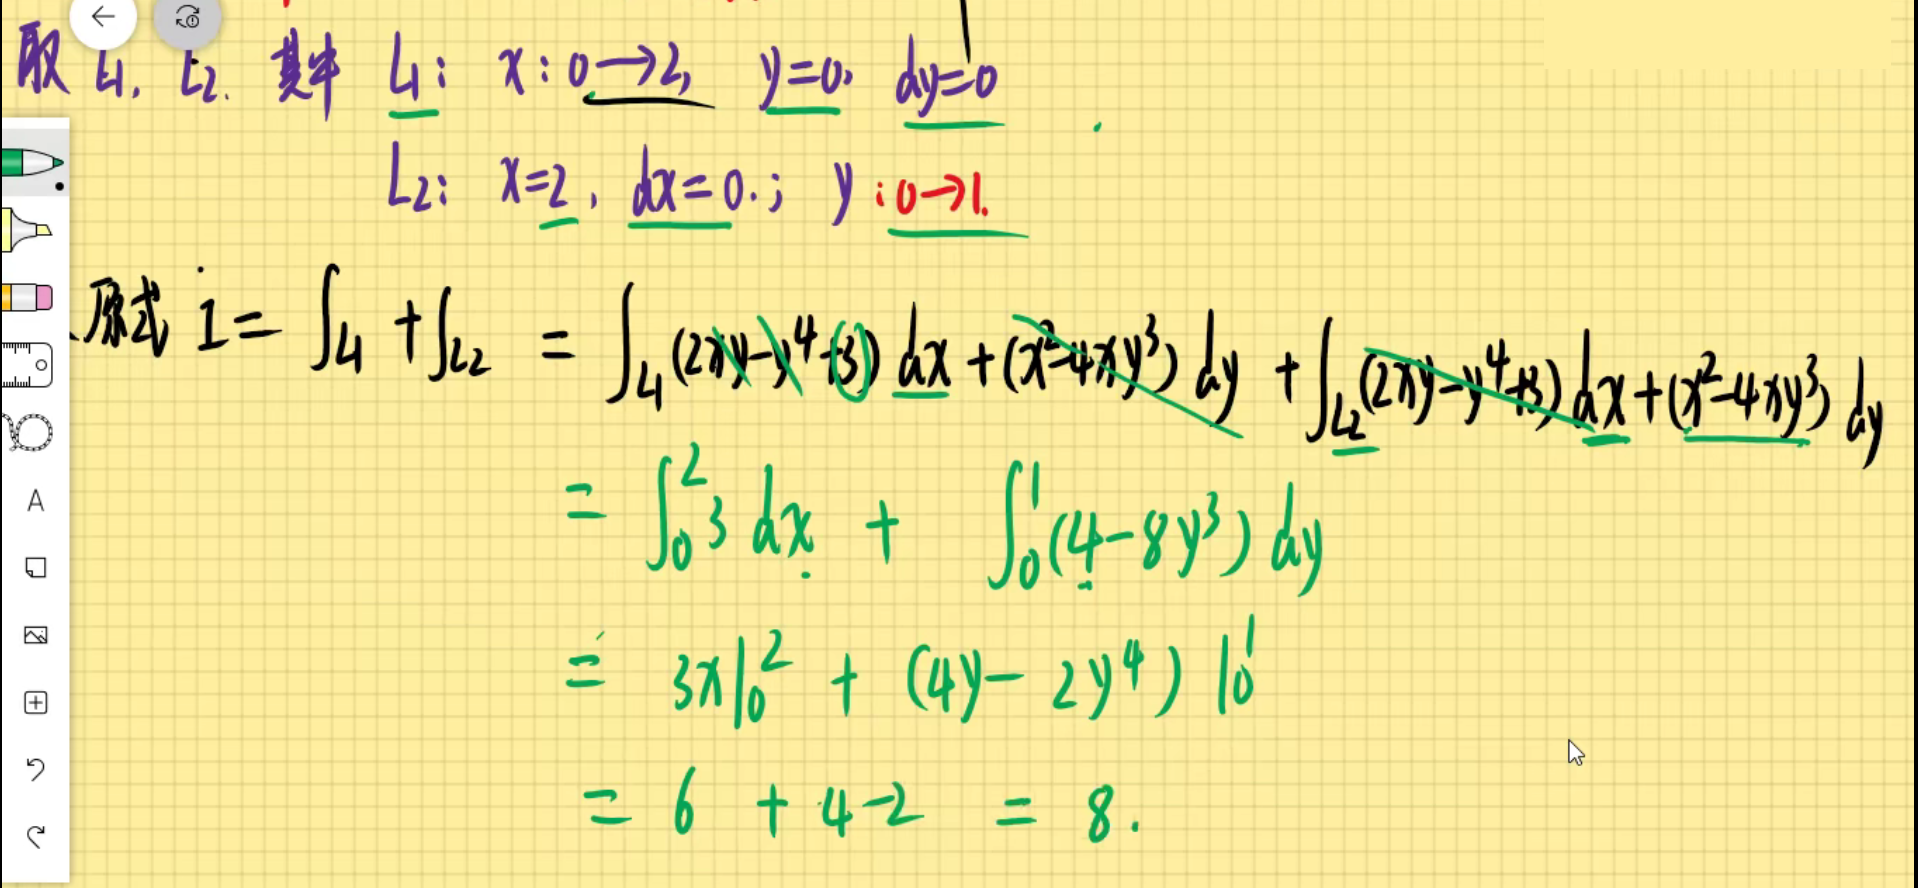 取 L1, L2. 其中 L1: x: 0→2, y=0, dy=0
L2: x=2, dx=0.; y: 0→1.
原式 I = ∫L1 + ∫L2 = ∫L1 (2xy-y⁴+3) dx + (x²-4xy³) dy + ∫L2 (2xy-y⁴+3) dx + (x²-4xy³) dy
= ∫₀² 3 dx + ∫₀¹ (4-8y³) dy
= 3x|₀² + (4y-2y⁴)|₀¹
= 6 + 4-2 = 8.
A